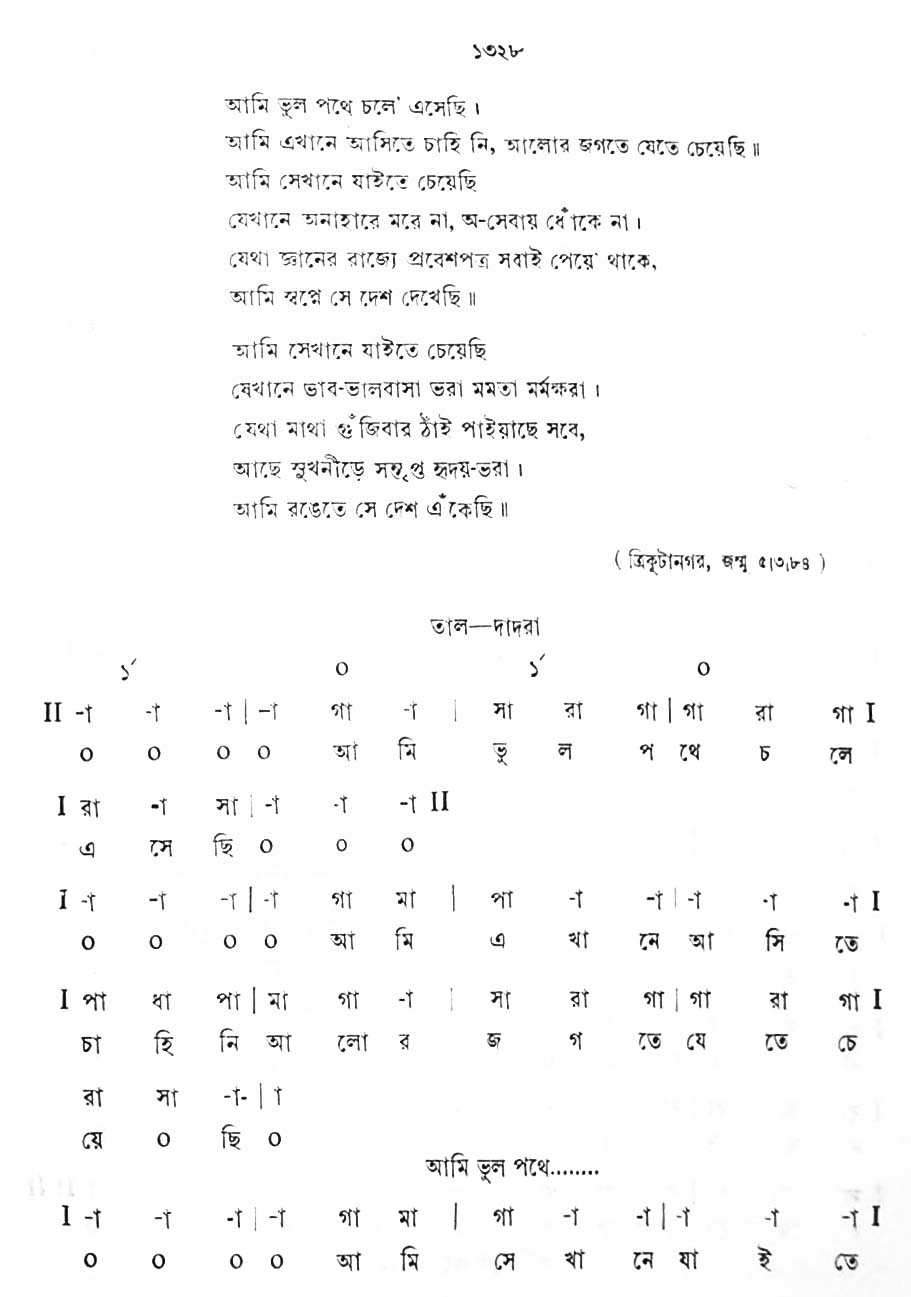 ১৩২৮
আমি ভুল পথে চলে' এসেছি ।
আমি এখানে আসিতে চাহি নি, আলোর জগতে যেতে চেয়েছি ॥
আমি সেখানে যাইতে চেয়েছি
যেখানে অনাহারে মরে না, অ-সেবায় ধোঁকে না ।
যেথা জ্ঞানের রাজ্যে প্রবেশপত্র সবাই পেয়ে' থাকে,
আমি স্বপ্নে সে দেশ দেখেছি ॥
আমি সেখানে যাইতে চেয়েছি
যেখানে ভাব-ভালবাসা ভরা মমতা মর্মক্ষরা ।
যেথা মাথা গুঁজিবার ঠাঁই পাইয়াছে সবে,
আছে সুখনীড়ে সম্পৃপ্ত হৃদয়-ভরা ।
আমি রঙেতে সে দেশ এঁকেছি ॥
( ত্রিকূটানগর, জম্মু ৫।৩।৮৪ )
তাল—দাদরা
১´ ০ ১´ ০
II -া -া -া | -া গা -া | সা রা গা | গা রা গা I
০ ০ ০ ০ আ মি ভু ল প থে চ লে
I রা -া সা | -া -া -া II
এ সে ছি ০ ০ ০
I -া -া -া | -া গা মা | পা -া -া | -া -া -া I
০ ০ ০ ০ আ মি এ খা নে আ সি তে
I পা ধা পা | মা গা -া | সা রা গা | গা রা গা I
চা হি নি আ লো র জ গ তে যে তে চে
রা সা -া- | া
য়ে ০ ছি ০
আমি ভুল পথে........
I -া -া -া | -া গা মা | গা -া -া | -া -া -া I
০ ০ ০ ০ আ মি সে খা নে যা ই তে